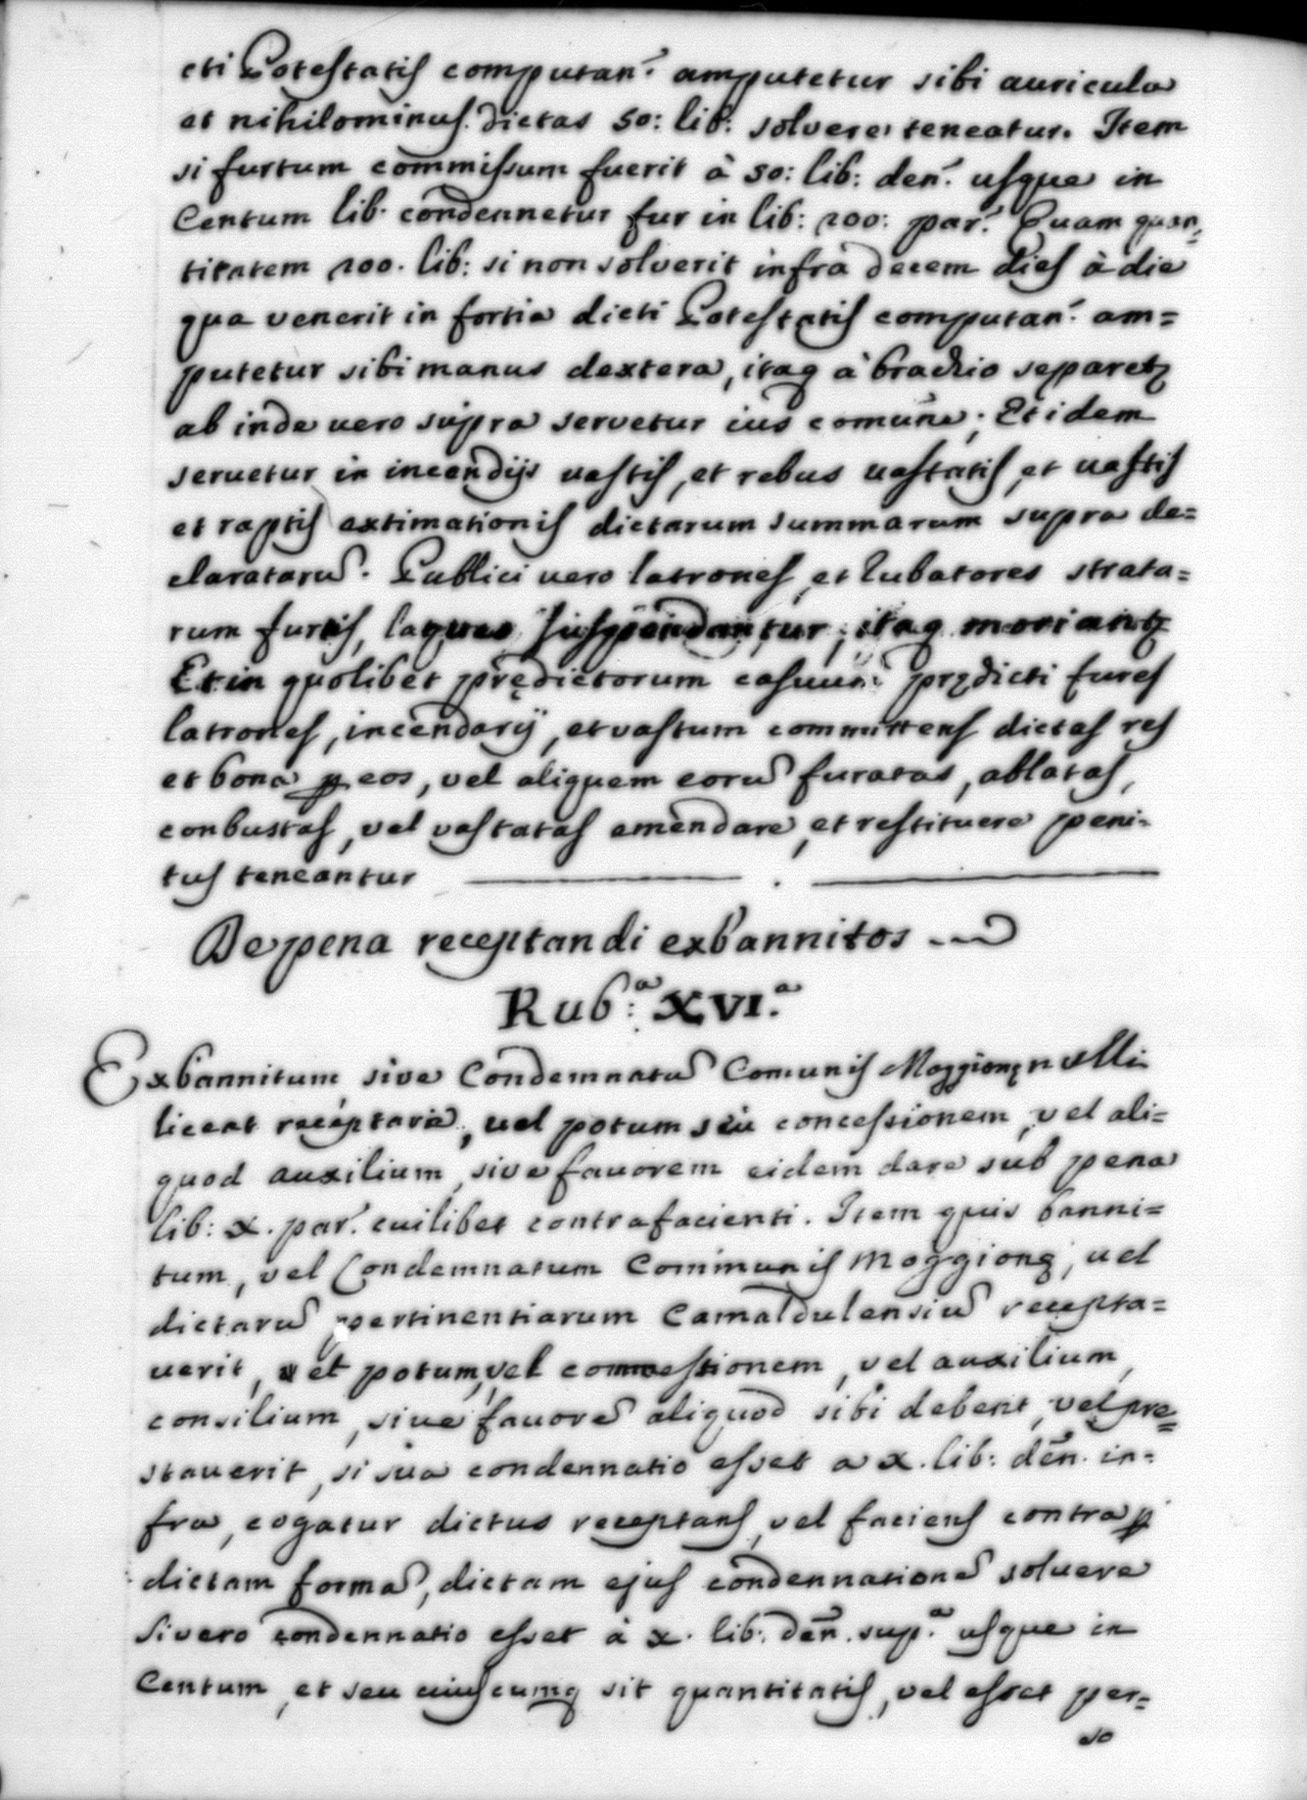 cti Potestatis computan: amputetur sibi auricula
et nihilominus dictas 50: lib: solvere teneatur. Item
si furtum commissum fuerit à 50: lib: den: usque in
Centum lib. condennetur fur in lib: 200: par: Quam quan=
titatem 200. lib: si non solverit infrà decem dies à die
qua venerit in fortia dicti Potestatis computan: am=
putetur sibi manus dextera, itaq à brachio separetz
ab inde vero supra servetur ius comune; Et idem
seruetur in incendijs vastis, et rebus vastatis, et vastis
et raptis extimationis dictarum summarum supra de=
claratarũ. Publici vero latrones, et Rubatores strata=
rum furtis, laqueo suspendantur, itaq moriantz
Et in quolibet prędictorum casuum prędicti fures
latrones, incendarÿ, et vastum committens dictas res
et bona ꝑ eos, vel aliquem eorũ furatas, ablatas,
conbustas, vel vastatas emendare, et restituere peni=
tus teneantur
De pena receptandi exbannitos
Rub:ᵃ XVI.ᵃ
Exbannitum sive Condemnatũ Comunis Moggionę nulli
liceat receptare, vel potum seu concessionem, vel ali=
quod auxilium, sive fauorem eidem dare sub pena
lib: x. par: cuilibet contrafacienti. Item quis banni=
tum, vel Condemnatum Communis Moggionę, vel
dictarũ pertinentiarum Camaldulensiũ recepta=
uerit, vel potum, vel comestionem, vel auxilium,
consilium, siue fauorẽ aliquod sibi deberit, vel pre=
stauerit, si sua condennatio esset a x. lib: den. in=
fra, cogatur dictus receptans, vel faciens contra ꝑ
dictam formã, dictam ejus condennationẽ soluere
Si vero condennatio esset à x. lib: den. sup.ᵃ usque in
Centum, et seu cuiuscumq sit quantitatis, vel esset per=
so